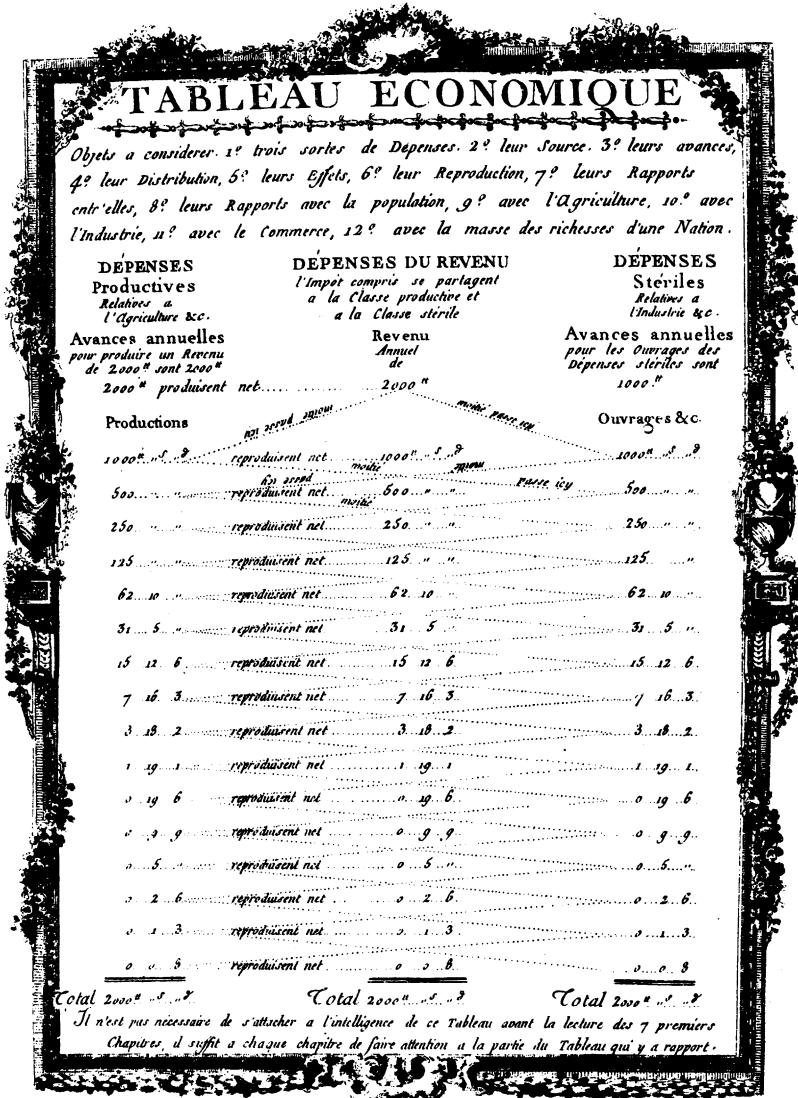 TABLEAU ECONOMIQUE
Objets a considerer. 1º trois sortes de Depenses. 2º leur Source. 3º leurs avances,
4º leur Distribution, 5º leurs Effets, 6º leur Reproduction, 7º leurs Rapports
entr'elles, 8º leurs Rapports avec la population, 9º avec l'Agriculture, 10º avec
l'Industrie, 11º avec le Commerce, 12º avec la masse des richesses d'une Nation.
DÉPENSES
Productives
Relatives a
l'Agriculture &c.
Avances annuelles
pour produire un Revenu
de 2000ᵗᵗ sont 2000ᵗᵗ
2000ᵗᵗ produisent net
DÉPENSES DU REVENU
l'Impôt compris se partagent
a la Classe productive et
a la Classe stérile
Revenu
Annuel
de
2000ᵗᵗ
DÉPENSES
Stériles
Relatives a
l'Industrie &c.
Avances annuelles
pour les Ouvrages des
Dépenses stériles sont
1000ᵗᵗ
Productions
Ouvrages &c.
moitié passe icy
moitié passe icy
1000ᵗᵗ „s „d reproduisent net 1000ᵗᵗ „s „d 1000ᵗᵗ „s „d
moitié
passe icy
passe icy
moitié
500 „ „ reproduisent net 500 „ „ 500 „ „
250 „ „ reproduisent net 250 „ „ 250 „ „
125 „ „ reproduisent net 125 „ „ 125 „
62 10 „ reproduisent net 62 10 62 10 „
31 5 „ reproduisent net 31 5 „ 31 5 „
15 12 6 reproduisent net 15 12 6 15 12 6
7 16 3 reproduisent net 7 16 3 7 16 3
3 18 2 reproduisent net 3 18 2 3 18 2
1 19 1 reproduisent net 1 19 1 1 19 1
0 19 6 reproduisent net 0 19 6 0 19 6
0 9 9 reproduisent net 0 9 9 0 9 9
0 5 „ reproduisent net 0 5 „ 0 5 „
0 2 6 reproduisent net 0 2 6 0 2 6
0 1 3 reproduisent net 0 1 3 0 1 3
0 0 8 reproduisent net 0 0 8 0 0 8
Total 2000ᵗᵗ „s „d Total 2000ᵗᵗ „s „d Total 2000ᵗᵗ „s „d
Il n'est pas nécessaire de s'attacher a l'intelligence de ce Tableau avant la lecture des 7 premiers
Chapitres, il suffit a chaque chapitre de faire attention a la partie du Tableau qui y a rapport.